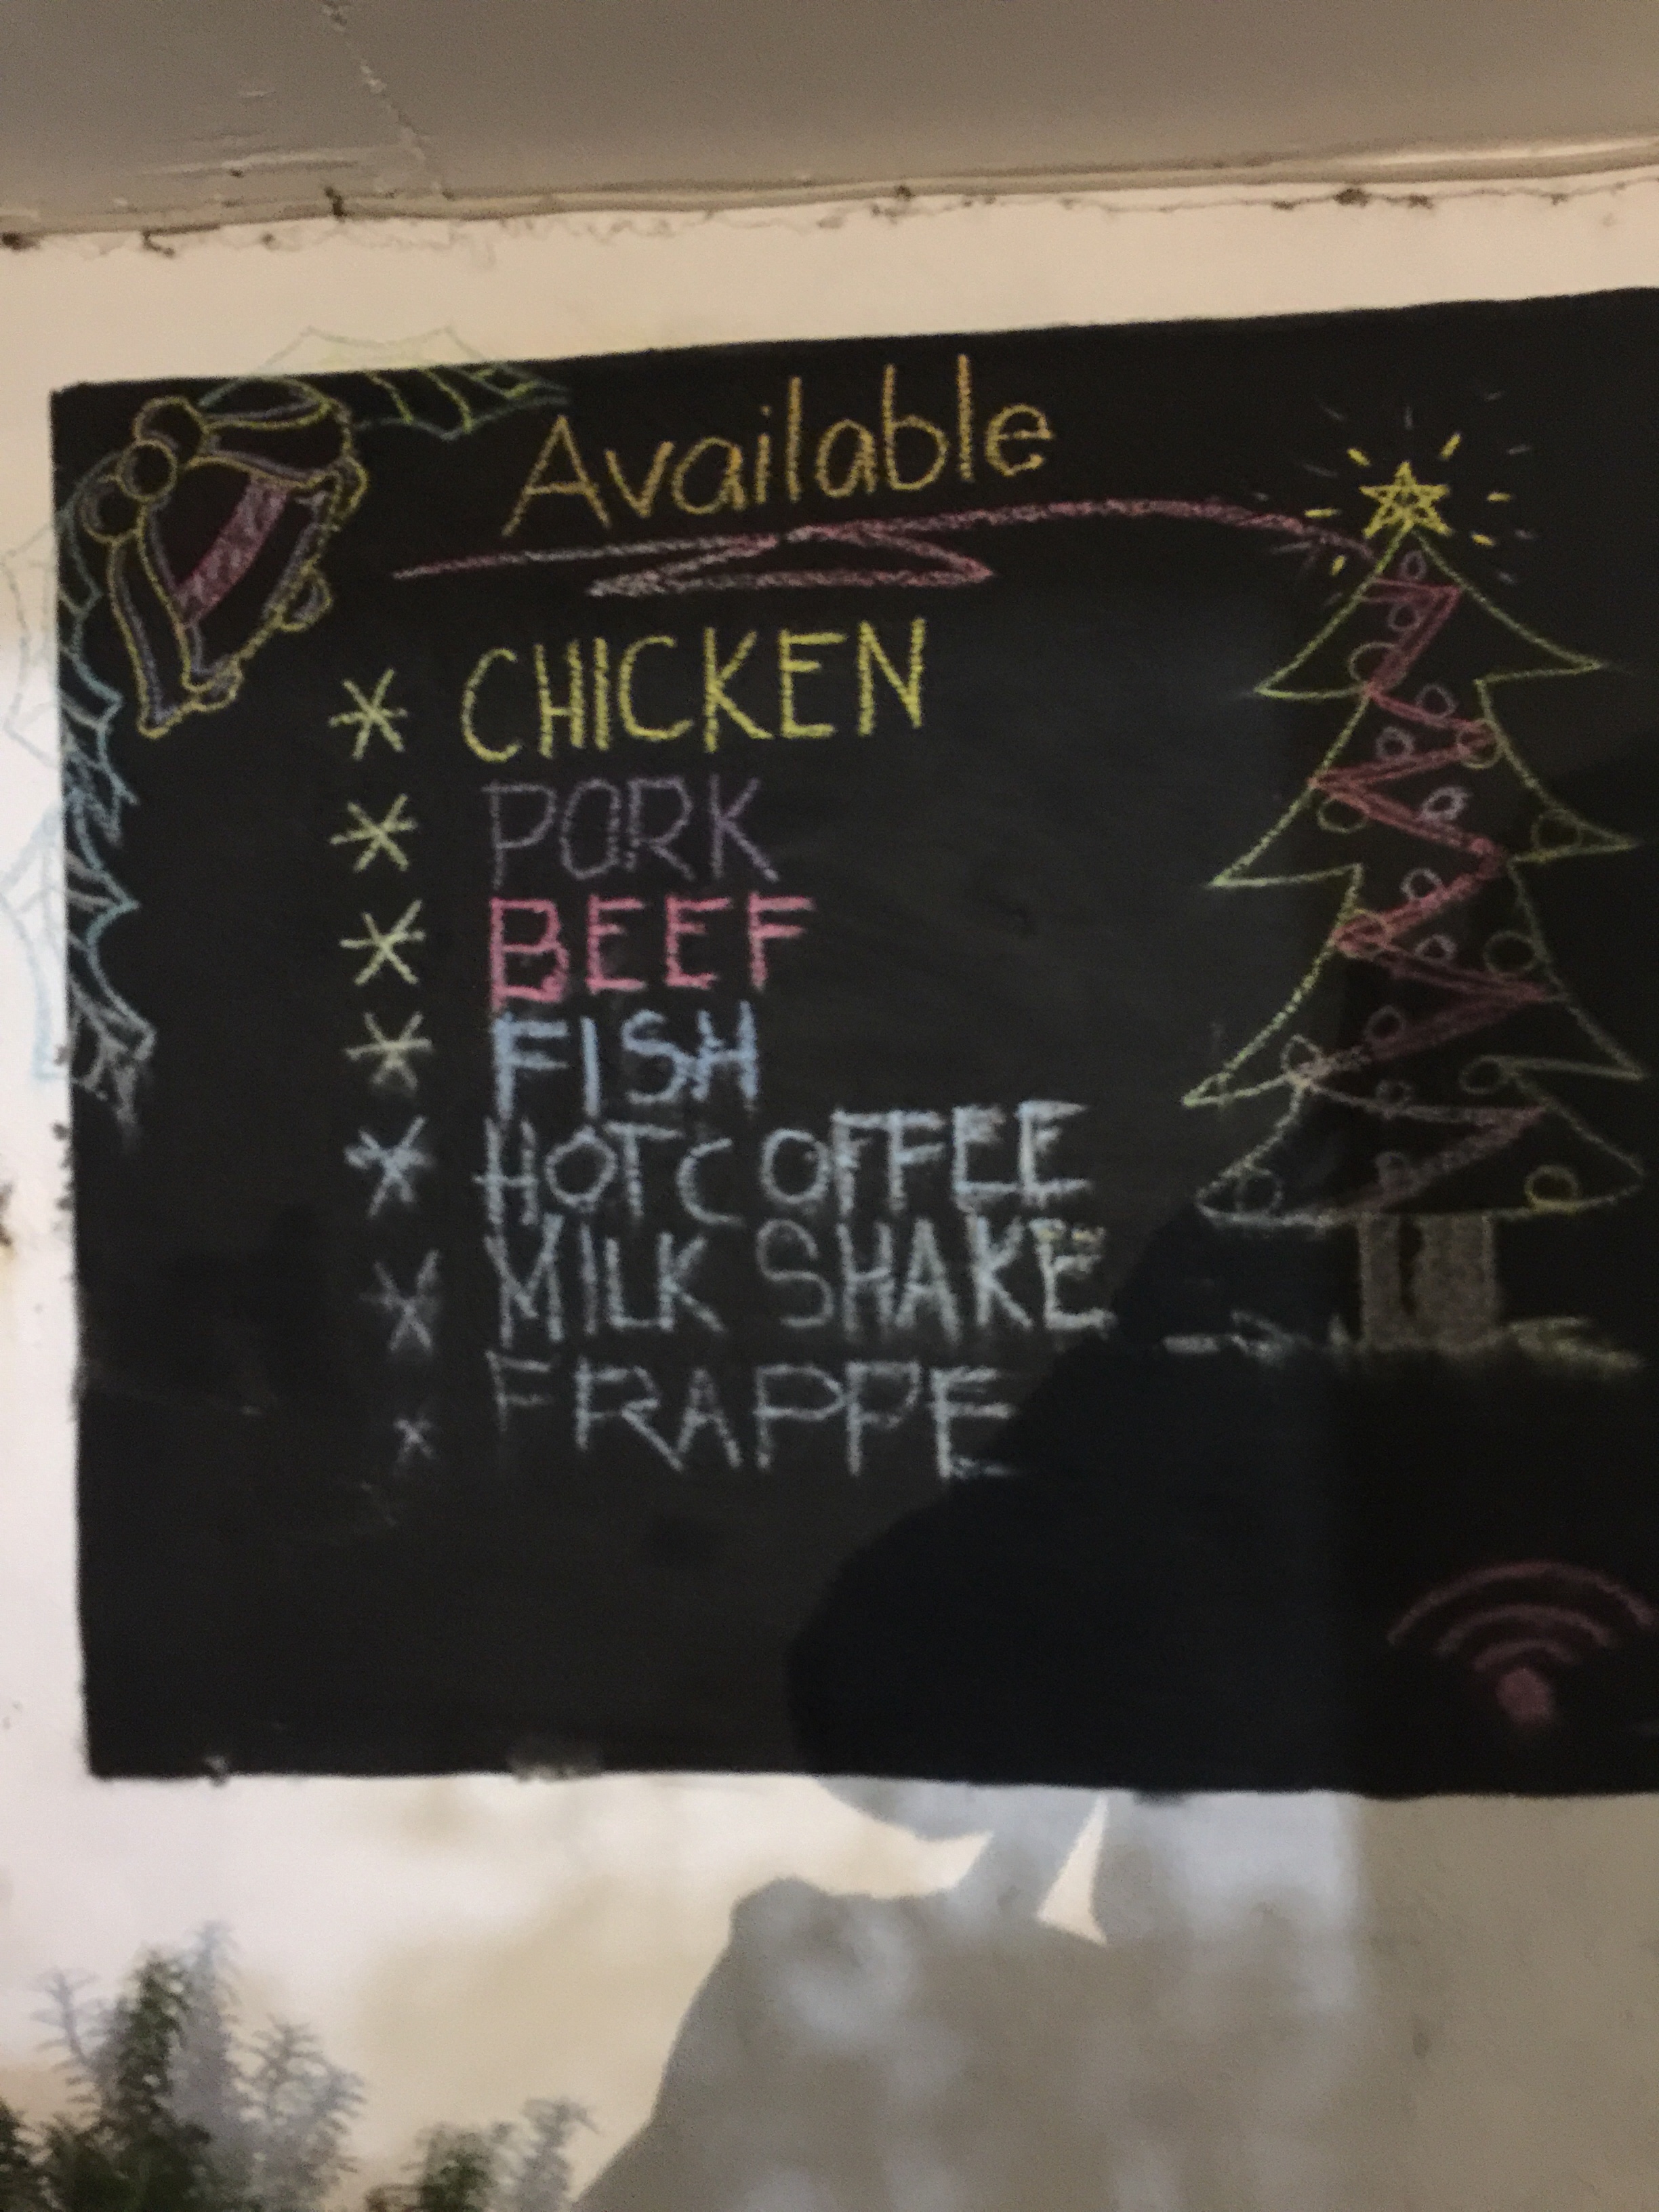 Available
* CHICKEN
* PORK
* BEEF
* FISH
* HOT COFFEE
* MILK SHAKE
* FRAPPE